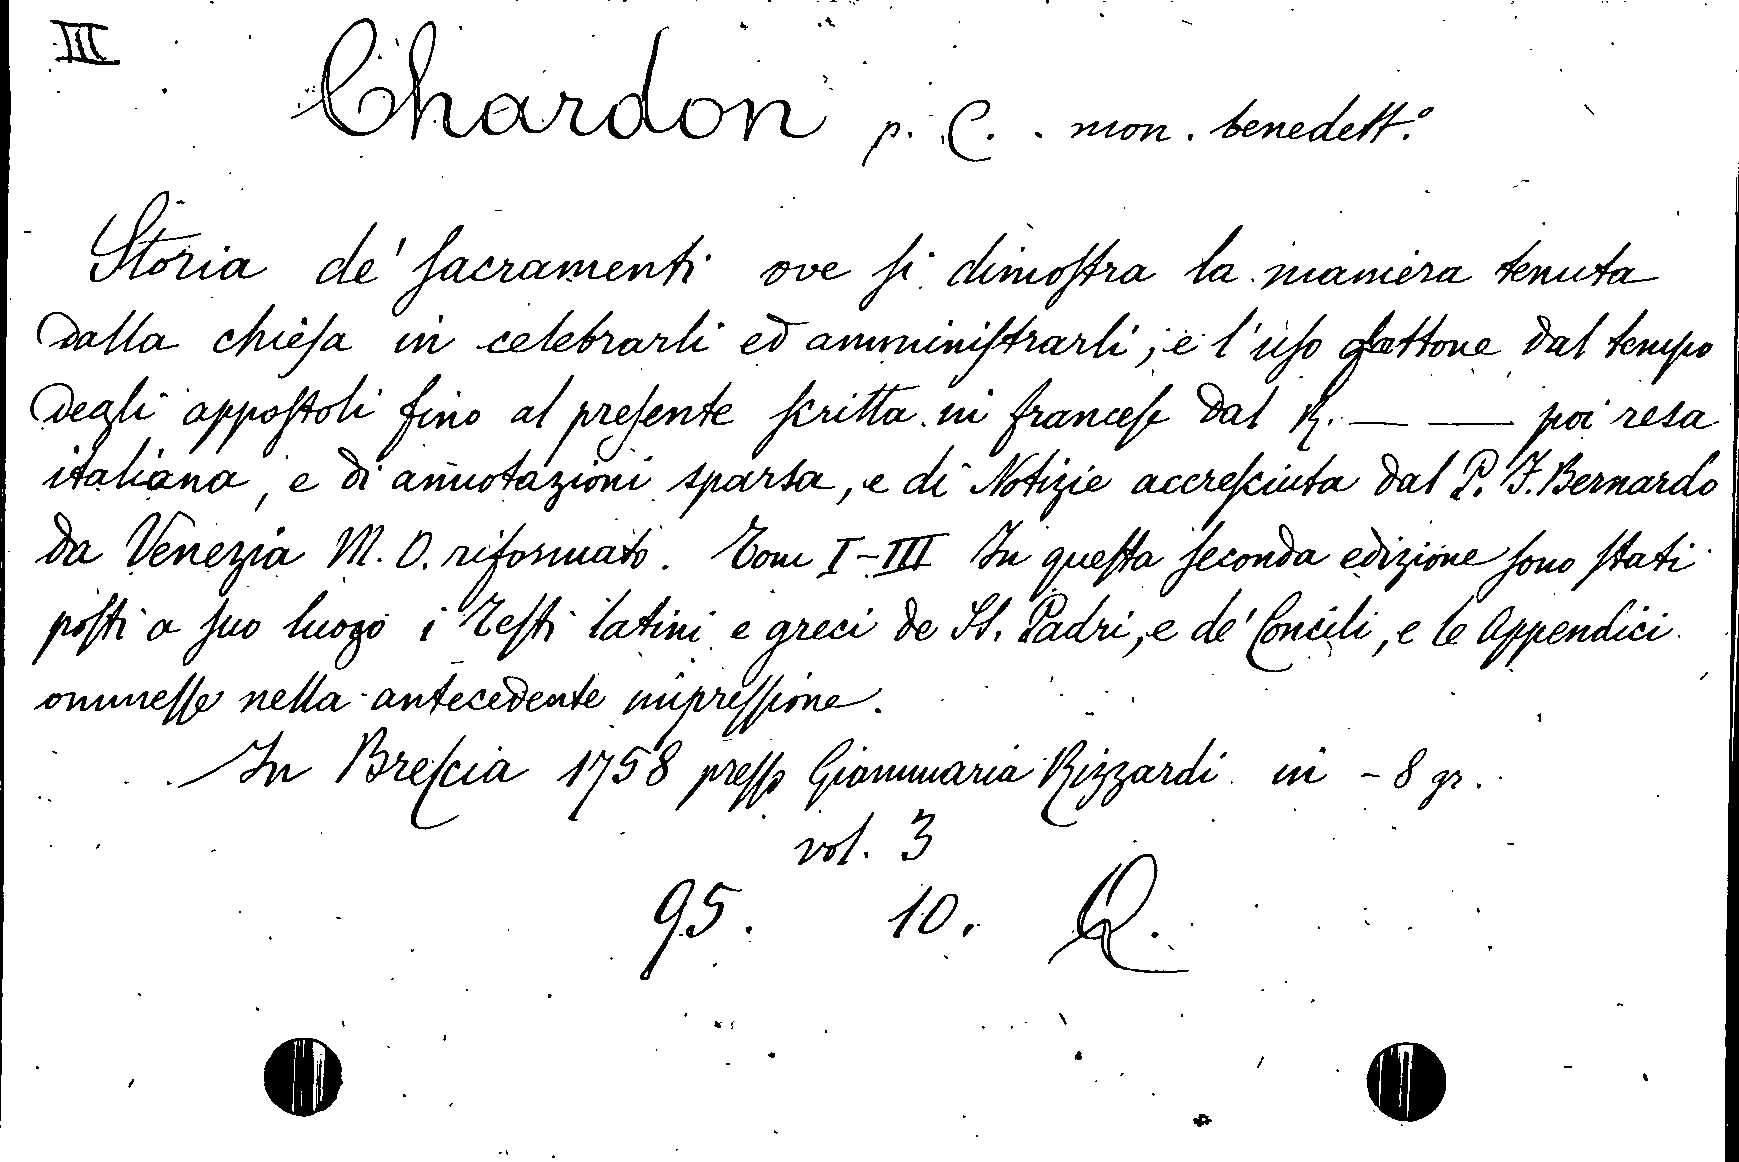 III
Chardon p. C. . mon. benedett.º
Storia de' sacramenti ove si dimostra la maniera tenuta
dalla chiesa in celebrarli ed amministrarli, e l'uso fattone dal tempo
degli appostoli fino al presente scritta in francese dal R. — — poi resa
italiana, e di annotazioni sparsa, e di Notizie accresciuta dal P. F. Bernardo
da Venezia M. O. riformato. Tom I-III In questa seconda edizione sono stati
posti a suo luogo i Testi latini e greci de SS. Padri, e de' Concili, e le Appendici
ommesse nella antecedente impressione.
In Brescia 1758 presso Giammaria Rizzardi in - 8 gr.
vol. 3
95. 10. Q.